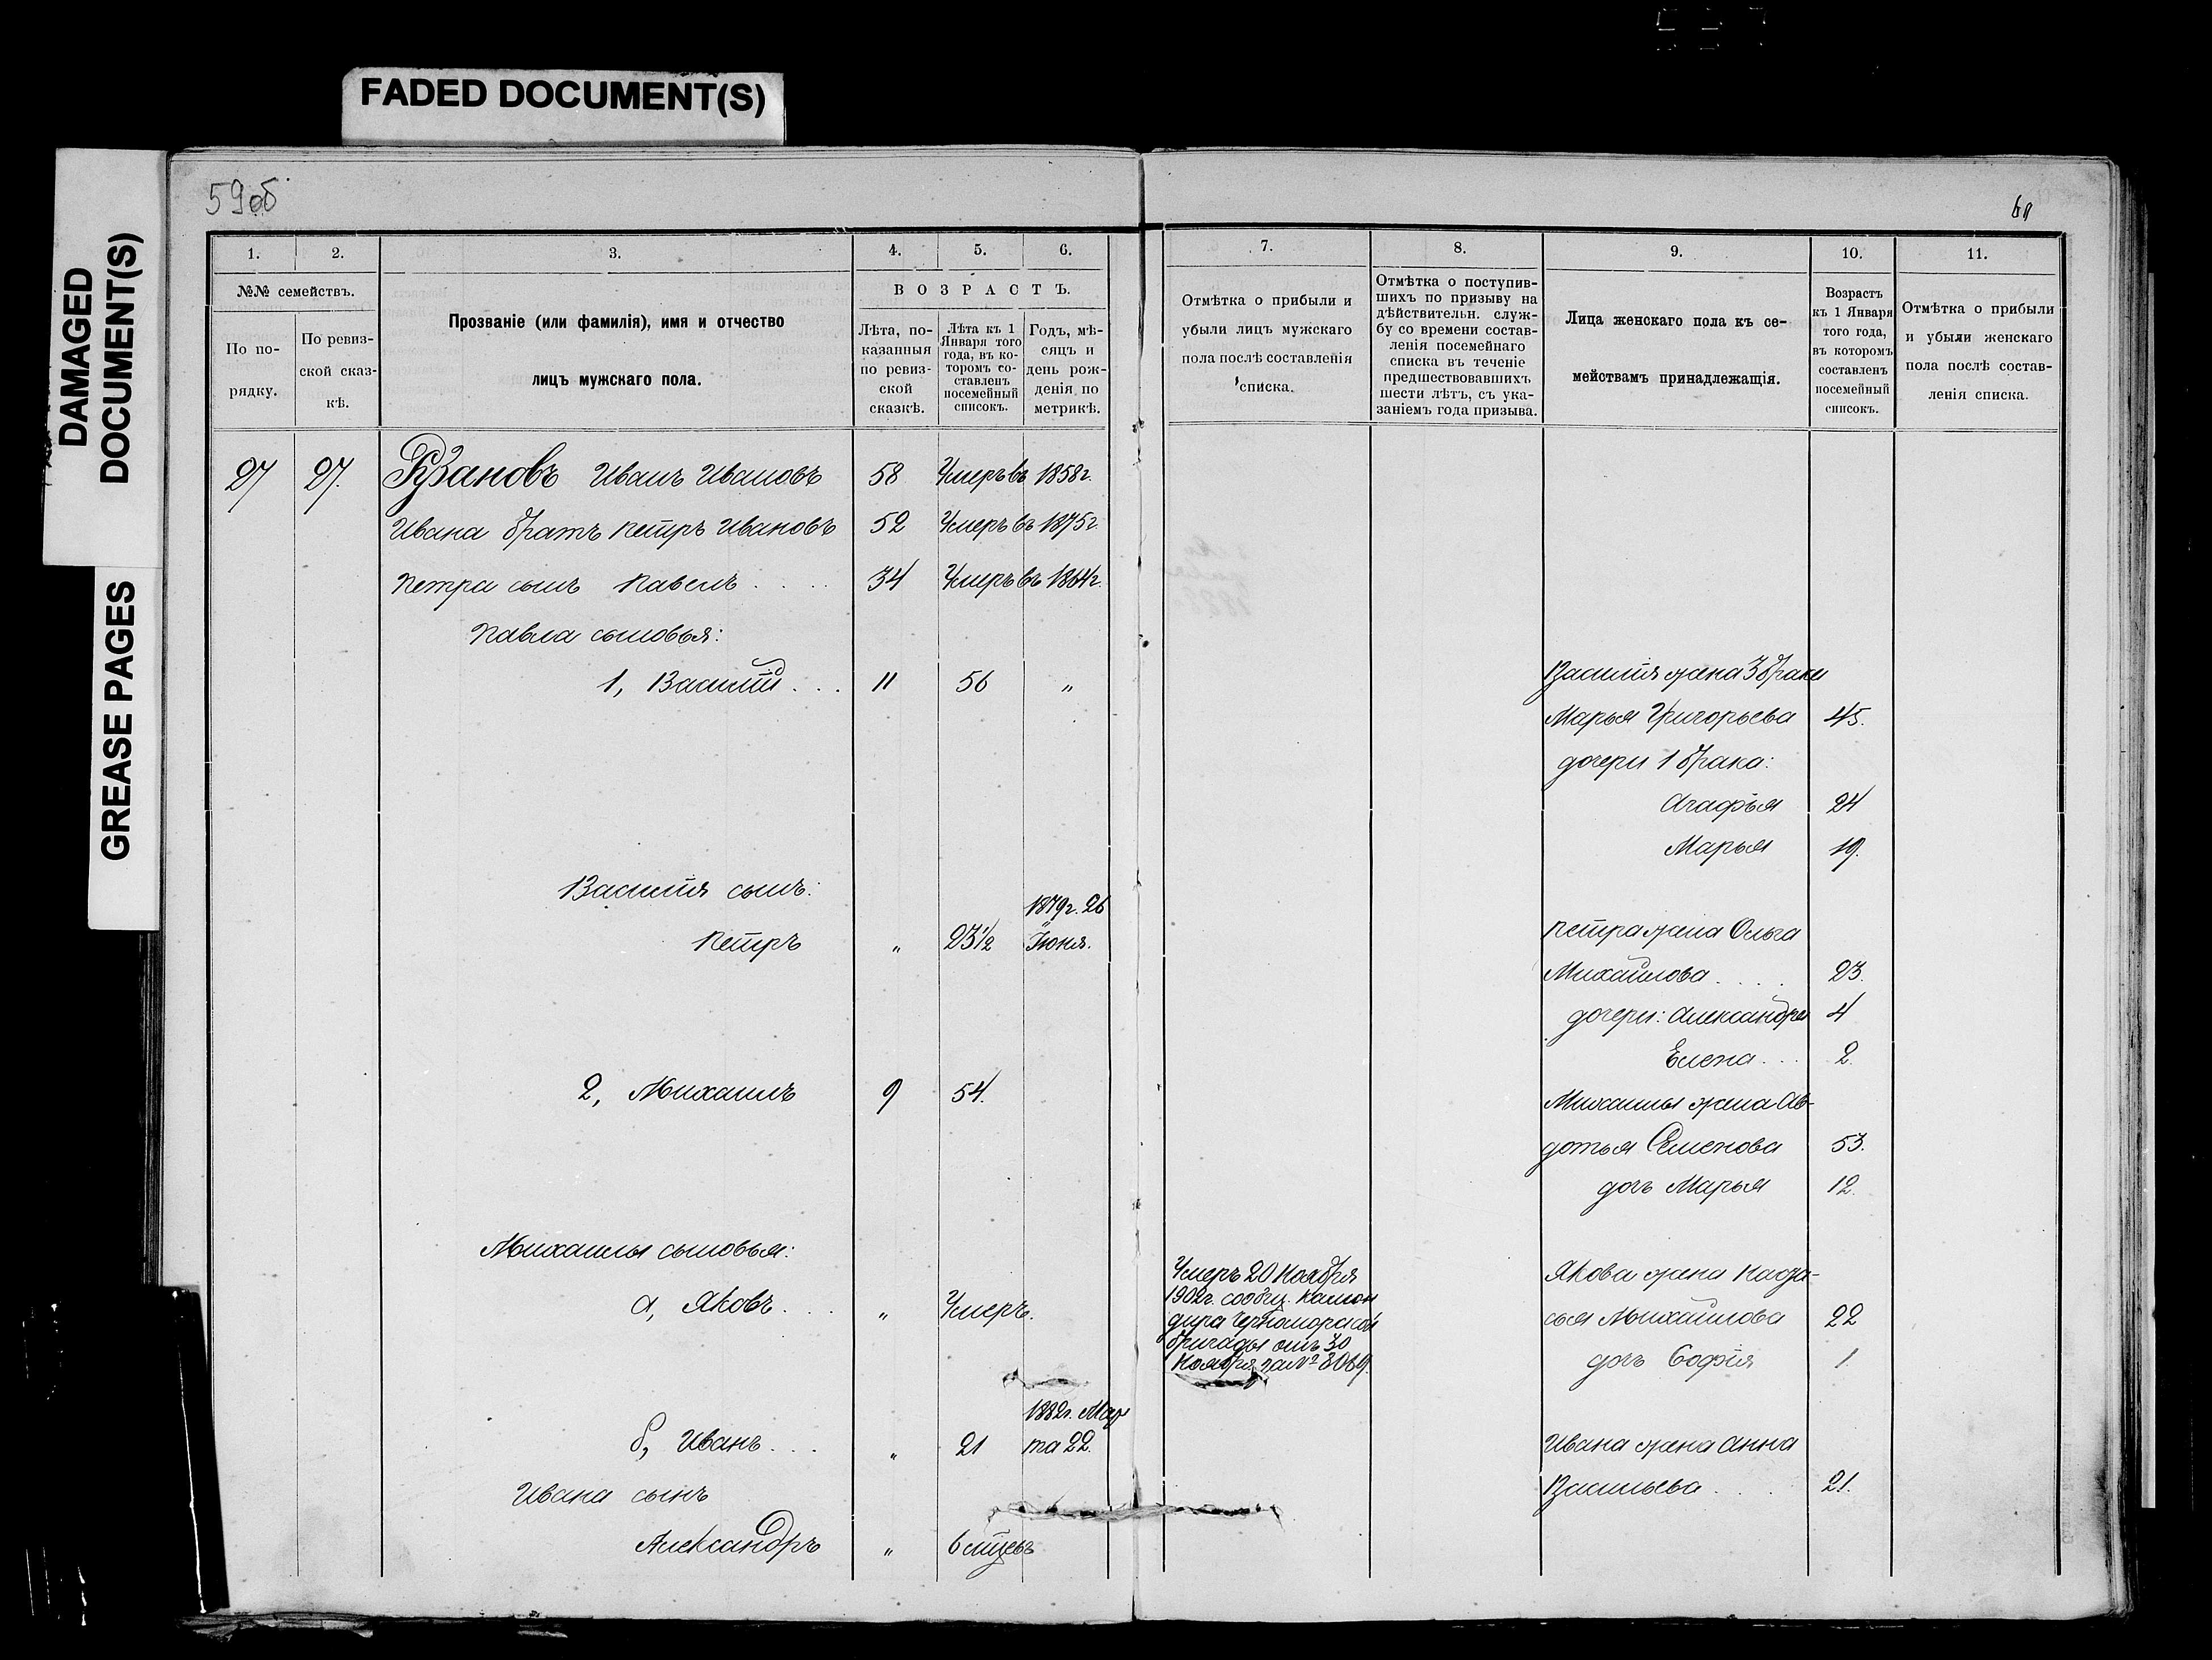 FADED DOCUMENT(S)
DAMAGED
DOCUMENT(S)
GREASE PAGES
59об
60
1.
2.
3.
4.
5.
6.
7.
8.
9.
10.
11.
№№ семействъ.
По по-
рядку.
По ревиз-
ской сказ-
кѣ.
Прозваніе (или фамилія), имя и отчество
лицъ мужскаго пола.
ВОЗРАСТЪ.
Лѣта, по-
казанныя
по ревиз-
ской
сказкѣ.
Лѣта къ 1
Января того
года, въ ко-
торомъ со-
ставленъ
посемейный
списокъ.
Годъ, мѣ-
сяцъ и
день рож-
денія по
метрикѣ.
Отмѣтка о прибыли и
убыли лицъ мужскаго
пола послѣ составленія
списка.
Отмѣтка о поступив-
шихъ по призыву на
дѣйствительн. служ-
бу со времени состав-
ленія посемейнаго
списка въ теченіе
предшествовавшихъ
шести лѣтъ, съ ука-
заніемъ года призыва.
Лица женскаго пола къ се-
мействамъ принадлежащія.
Возрастъ
къ 1 Января
того года,
въ которомъ
составленъ
посемейный
списокъ.
Отмѣтка о прибыли
и убыли женскаго
пола послѣ состав-
ленія списка.
27 27. Рузановъ Иванъ Ивановъ 58 Умеръ въ 1858г.
Ивана братъ Петръ Ивановъ 52 Умеръ въ 1875г.
Петра сынъ Павелъ . . . . 34 Умеръ въ 1864г.
Павла сыновья:
1, Василій . . . 11 56 "
Василія жена 3 брака
Марья Григорьева 45.
дочери 1 брака:
Агафья 24
Марья 19.
Василія сынъ:
Петръ " 23½ 1879г. 26
Іюня.
Петра жена Ольга
Михайлова . . . . 23.
дочери: Александра 4
Елена . . . 2.
2, Михаилъ 9 54.
Михаилы жена Ав-
дотья Семенова 53.
дочь Марья 12.
Михаилы сыновья:
а, Яковъ . . . " Умеръ.
Умеръ 20 Ноября
1902г. сообщ. Коман
дира Черноморской
бригады отъ 30
Ноября за № 3069.
Якова жена Наста-
сья Михайлова 22
дочь Софія 1.
б, Иванъ . . . " 21 1882г. Мар
та 22.
Ивана жена Анна
Васильева . . . 21.
Ивана сынъ
Александръ " 6 мцевъ